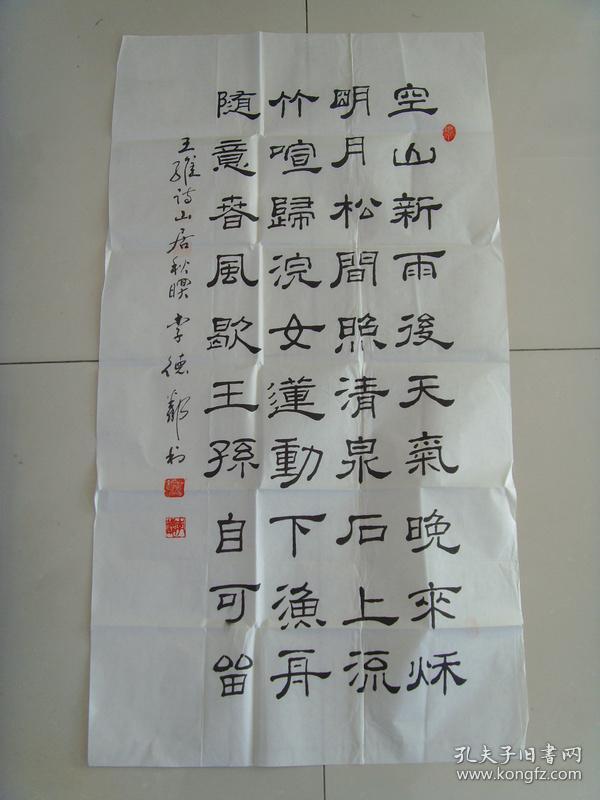 空山新雨後天氣晚來秌
明月松間照清泉石上流
竹喧歸浣女蓮動下漁舟
随意春風歇王孫自可留
王維诗山居秋暝 李德
孔夫子旧书网
www.kongfz.com